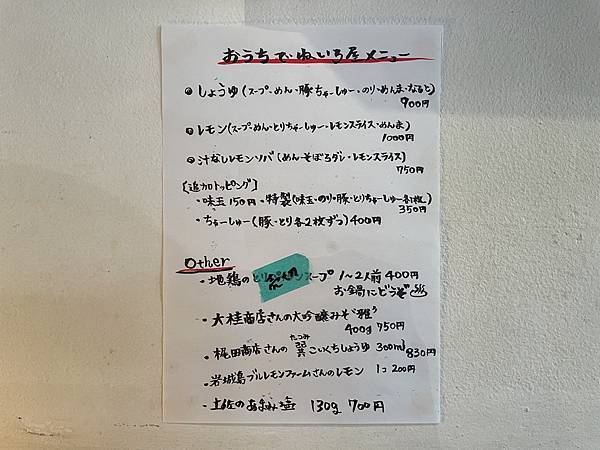 おうちでねいろ屋メニュー
しょうゆ(スープ・めん・豚ちゃーしゅー・のり・めんま・なると)
900円
レモン(スープ・めん・とりちゃーしゅー・レモンスライス・めんま)
1000円
汁なしレモンソバ(めん・そぼろダレ・レモンスライス)
750円
〔追加トッピング〕
・味玉150円・特製(味玉・のり・豚・とりちゃーしゅー各1枚)
350円
・ちゃーしゅー(豚・とり各2枚ずつ)400円
Other
・地鶏のとり スープ 1〜2人前 400円
お鍋にどうぞ
・大桂商店さんの大吟醸みそ"雅"
400g 750円
・梶田商店さんの たつみ こいくちしょうゆ 300ml 830円
・岩城島ブルレモンファームさんのレモン 1コ 200円
・土佐のあまみ塩 130g 700円